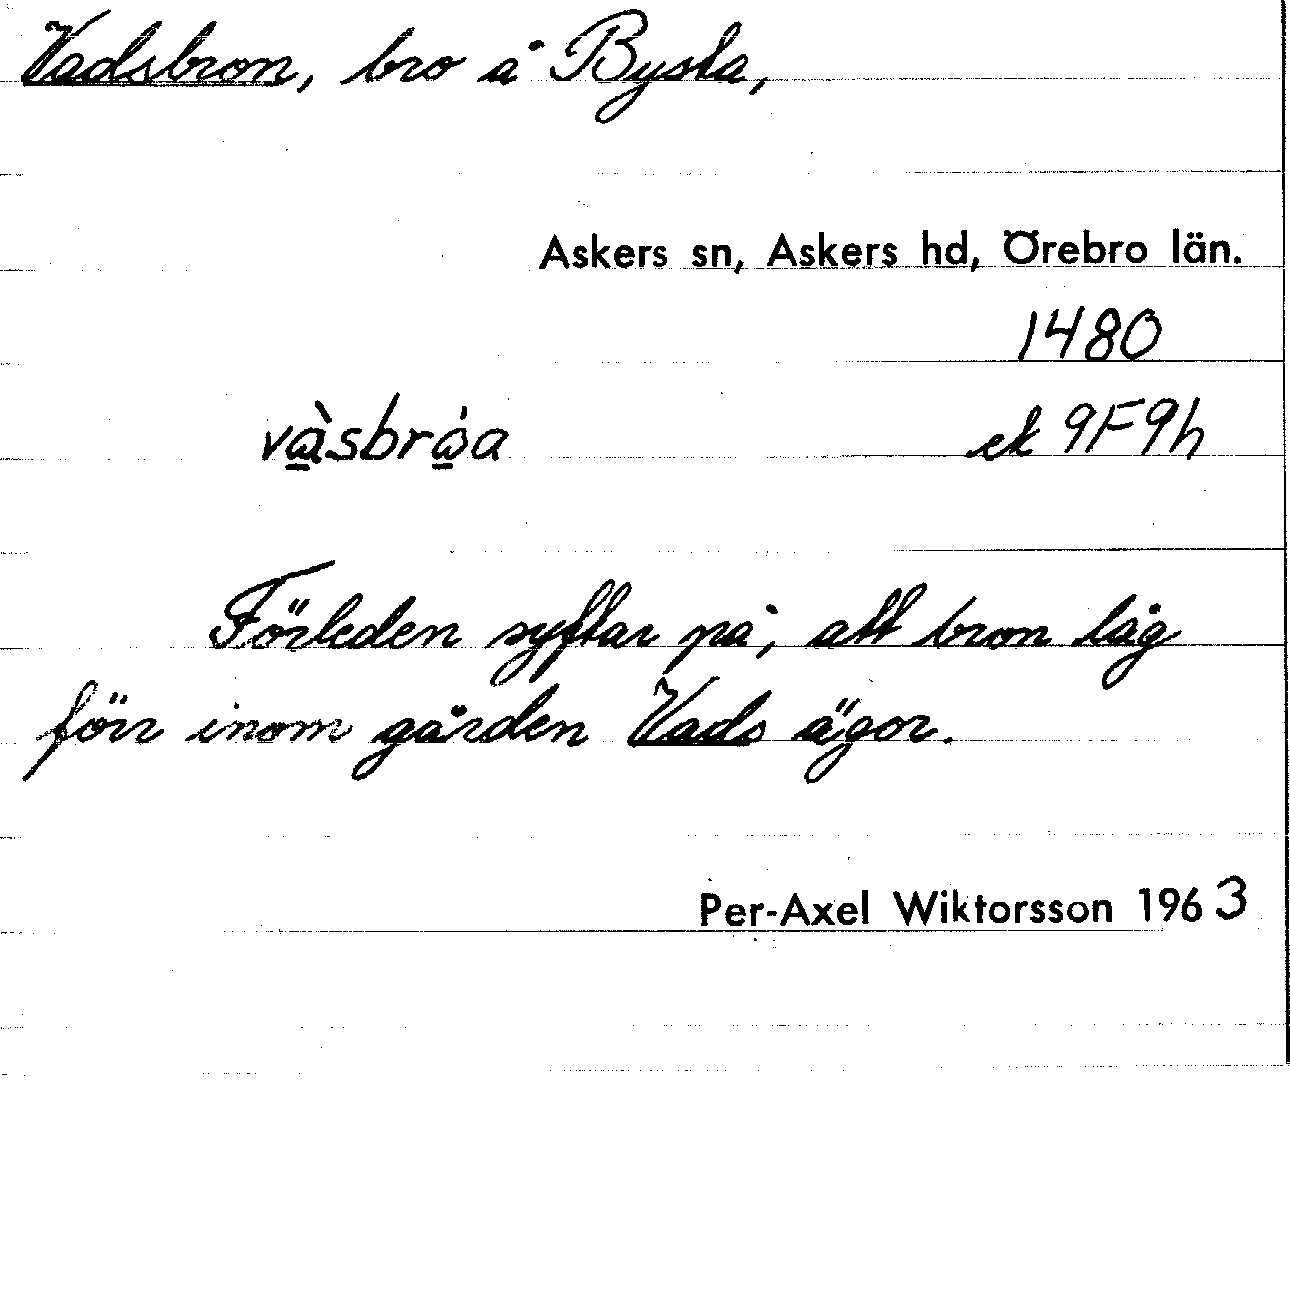 Vadsbron, bro å Bysta,
Askers sn, Askers hd, Örebro län.
1480
ek 9F9h
Förleden syftar på, att bron låg
förr inom gården Vads ägor.
Per-Axel Wiktorsson 1963